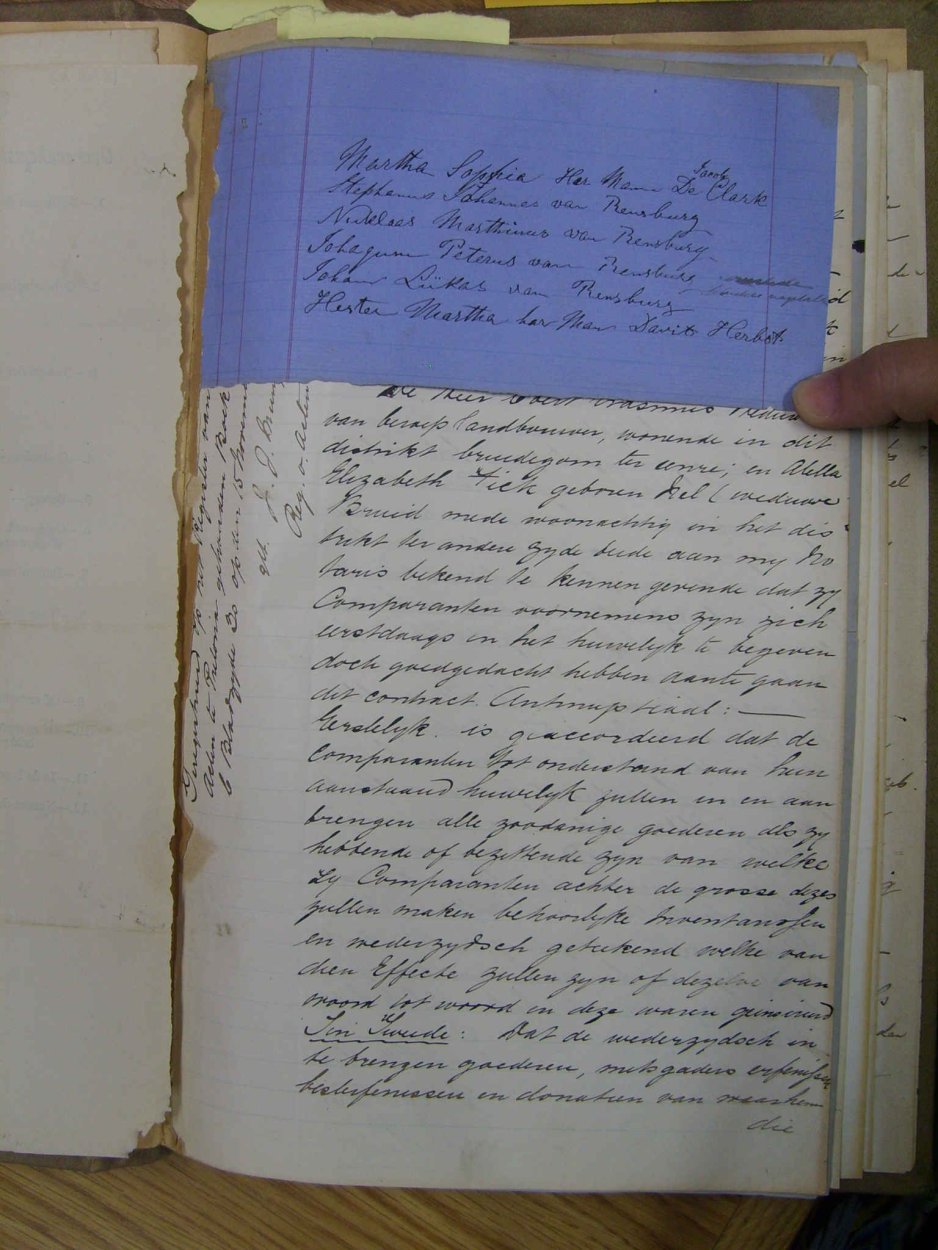 Martha Sophia Her Mann Jacob De Clark
Stephanus Johannes van Rensburg
Nicklaas Marthinus van Rensburg
Johagum Peterus van Rensburg
Johan Lükas van Rensburg
Hester Martha har Man Davit Herbst
De Heer Evert Erasmus
van beroep landbouwer, wonende in dit
distrikt bruidegom ter eenre; en Abella
Elizabeth Fick geboren Nel (weduwe
Bruid mede woonachtig in het dis
trikt ter andere zyde beide aan my No
taris bekend te kennen gevende dat zy
Comparanten voornemens zyn zich
eerstdaags in het huwelyk te begeven
doch goedgedacht hebben aante gaan
dit contract Antinuptiaal: —
Eerstelyk. is geaccordeerd dat de
Comparanten tot onderstand van hun
aanstaand huwelyk zullen in en aan
brengen alle zoodanige goederen als zy
hebbende of bezittende zyn van welke
Zy Comparanten achter de grosse dezes
zullen maken behoorlyke Inventarissen
en wederzydsch getekend welke van
dien Effecte zullen zyn of dezelve van
woord tot woord in deze waren geinsereerd
Ten Tweede: Dat de wederzydsch in
te brengen goederen, mitsgaders erfenissen
besterfenissen en donatien van waarhem
die
Geregistreerd op het Register van
Acten te Pretoria gehouden Boek
6 Bladzyde 20 op den 15
get. J. J.
Reg. v. Acten